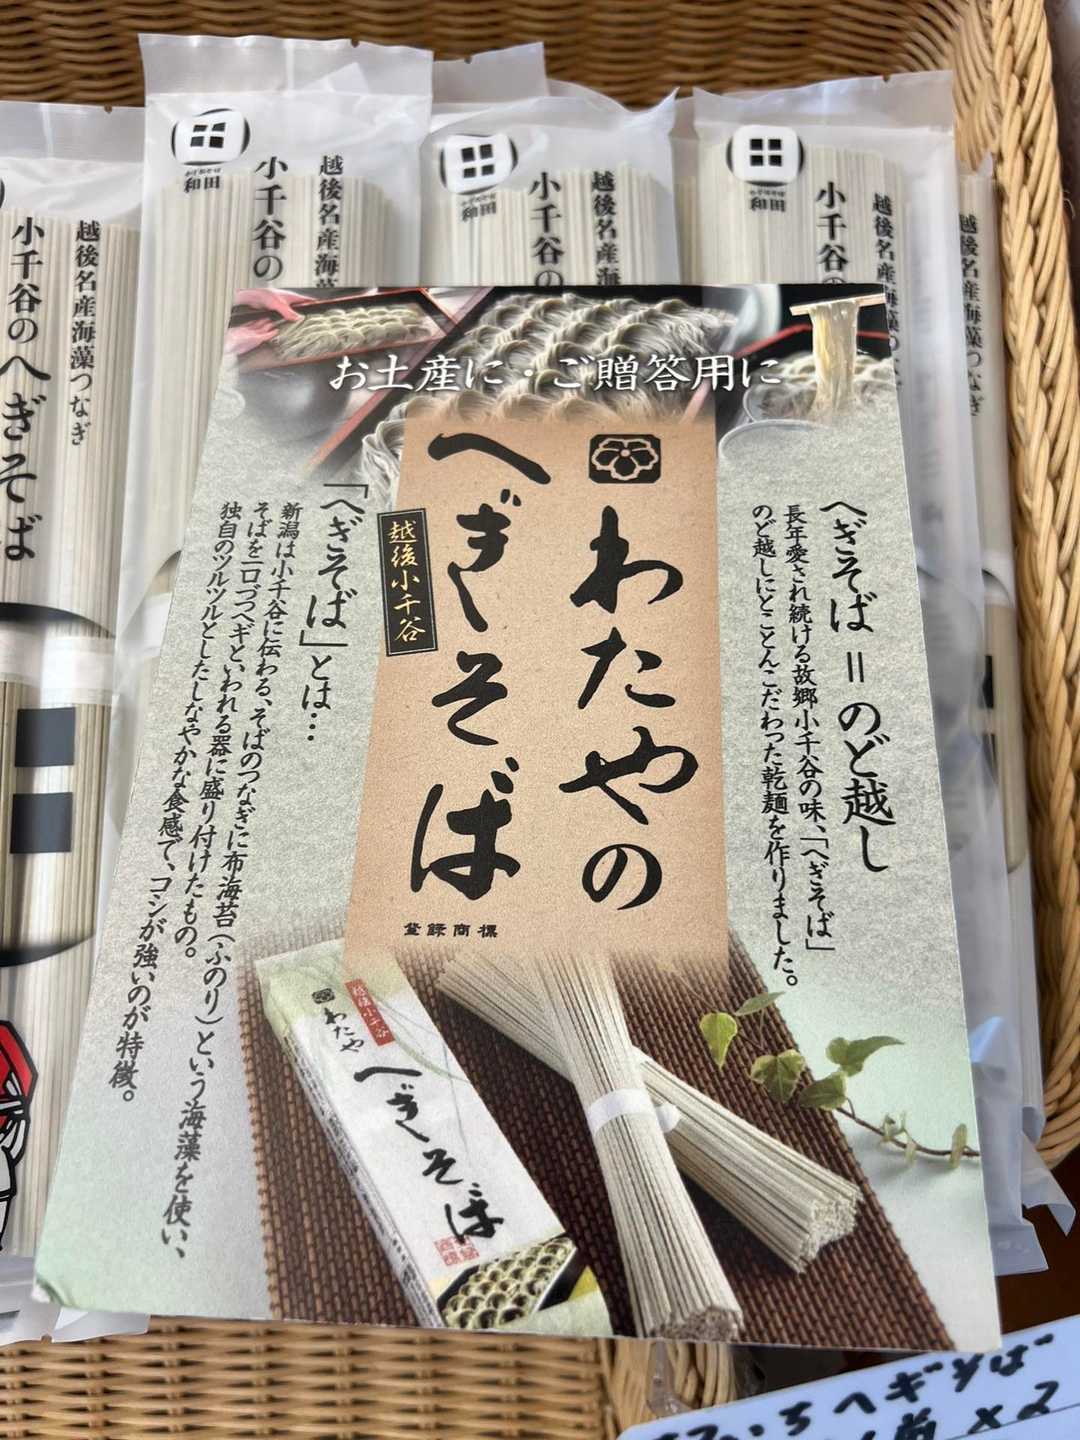 お土産に・ご贈答用に
わたやの
へぎそば
越後小千谷
登録商標
へぎそば＝のど越し
長年愛され続ける故郷小千谷の味、「へぎそば」
のど越しにとことんこだわった乾麺を作りました。
「へぎそば」とは…
新潟は小千谷に伝わる、そばのつなぎに布海苔(ふのり)という海藻を使い、
そばを一口づつヘギといわれる器に盛り付けたもの。
独自のツルツルとしたしなやかな食感で、コシが強いのが特徴。
越後小千谷
わたや
へぎそば
越後名産海藻つなぎ
小千谷のへぎそば
和田
越後名産海藻
小千谷の
和田
越後名産海
小千谷の
和田
越後名産海藻つ
小千谷の
越後名産海藻つなぎ
ヘギそば
×2